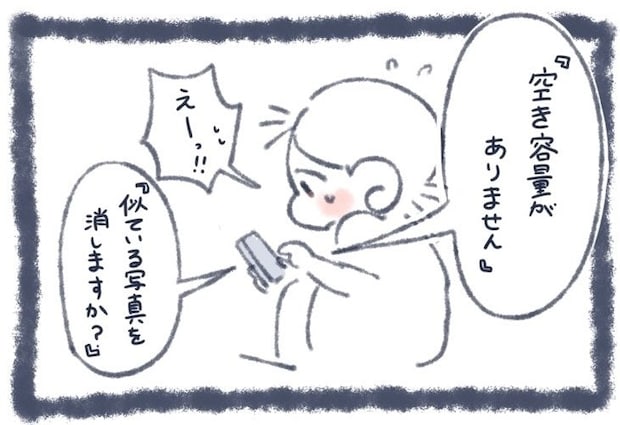 『空き容量が
ありません』
えーっ!!
『似ている写真を
消しますか?』